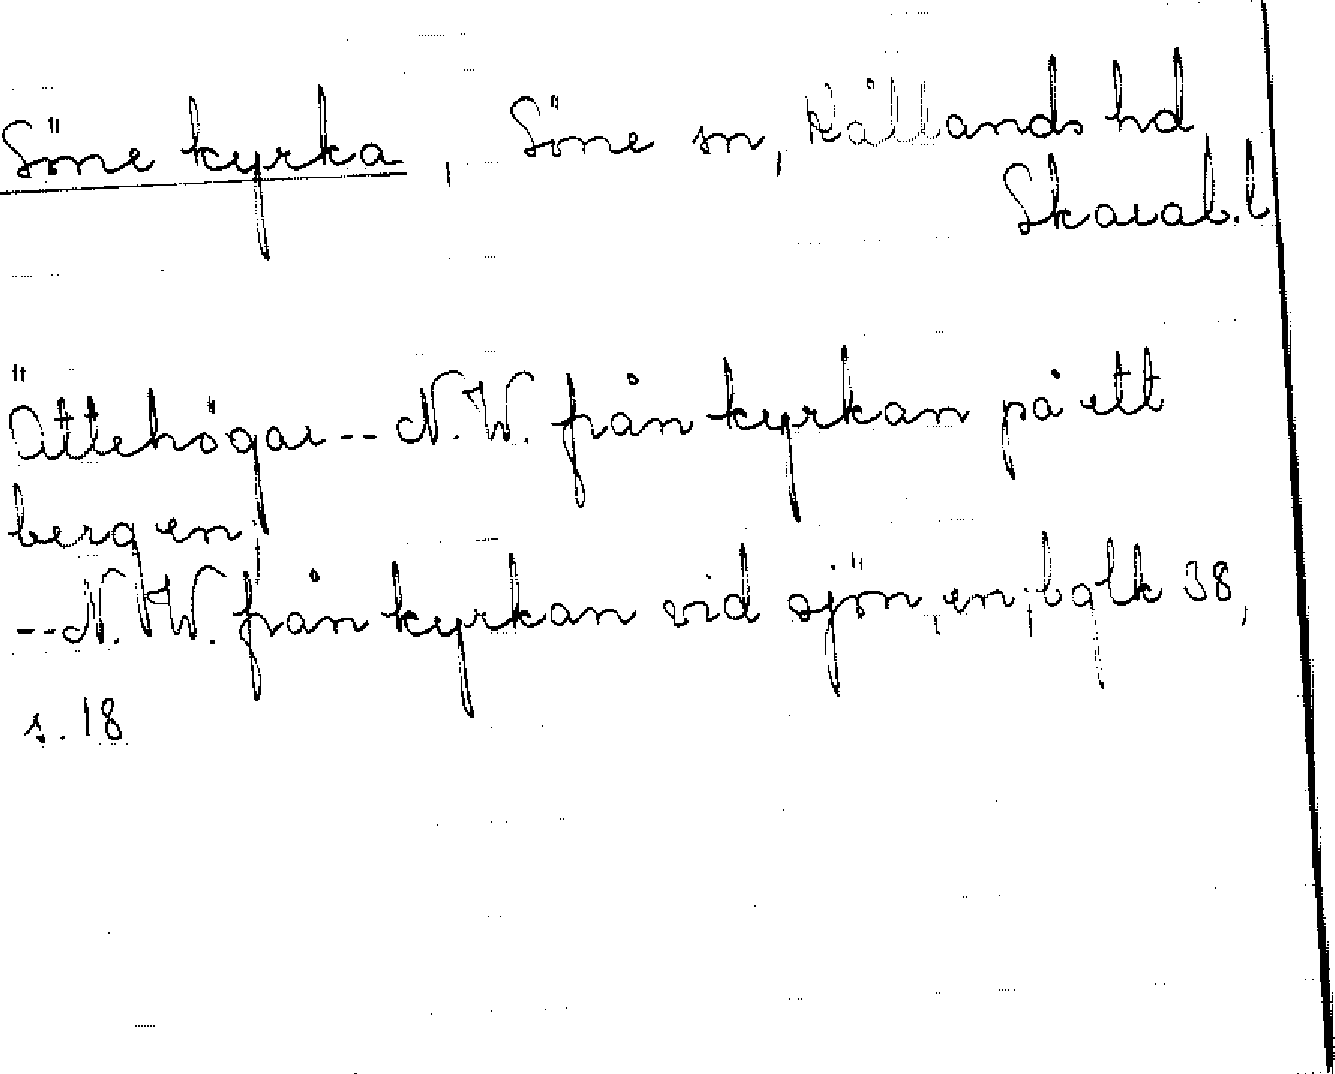 Söne kyrka, Söne sn, Kållands hd,
Skarab. l
Ättehögar -- N.W. från kyrkan på ett
berg en;
-- N.W. från kyrkan vid sjön, en; bqlk 38,
s. 18